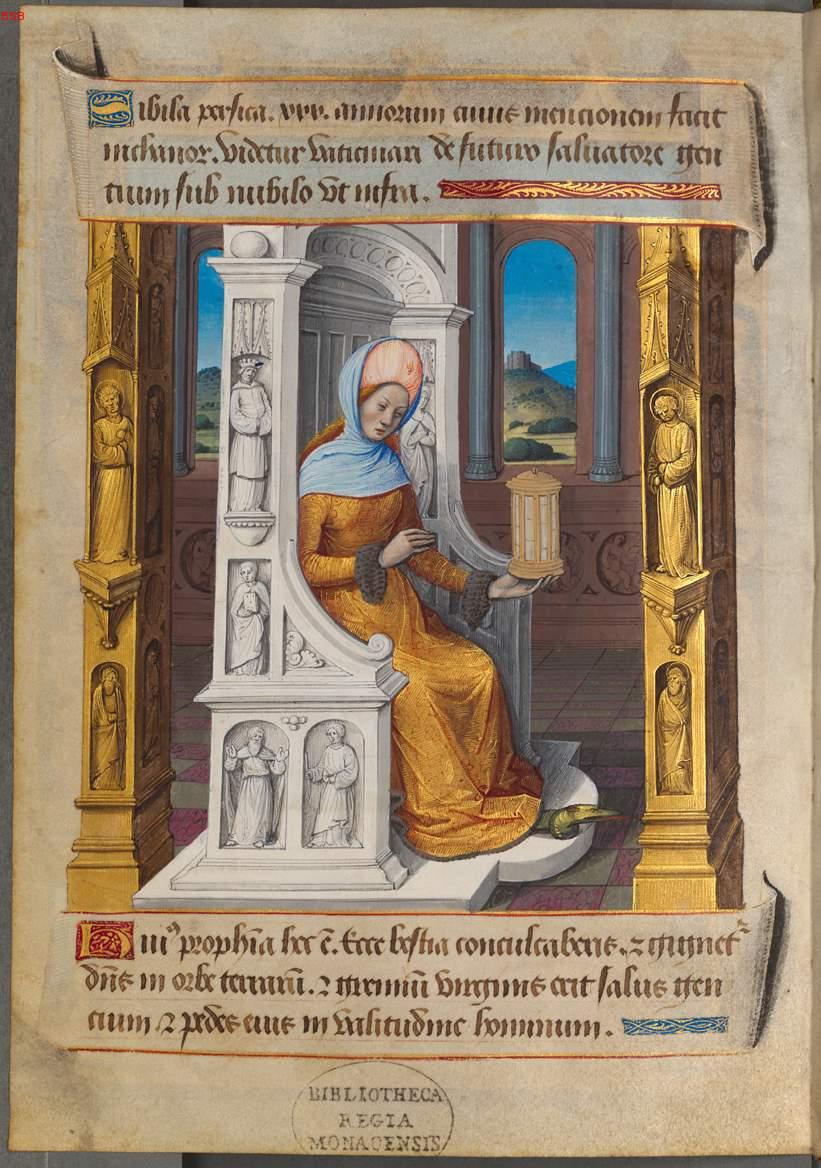 558
Sibila persica. xxx. annorum cuius mencionem facit
nichanor. Videtur vaticinari de futuro saluatore gen
tium sub nubilo vt infra.
Hui⁹ proph̃ia hec ẽ. Ecce bestia conculcaberis. ⁊ gignet᷑
dñs in orbe terrarũ. ⁊ gremiũ virginis erit salus gen
cium ⁊ pedes eius in valitudine hominum.
BIBLIOTHECA
REGIA
MONACENSIS